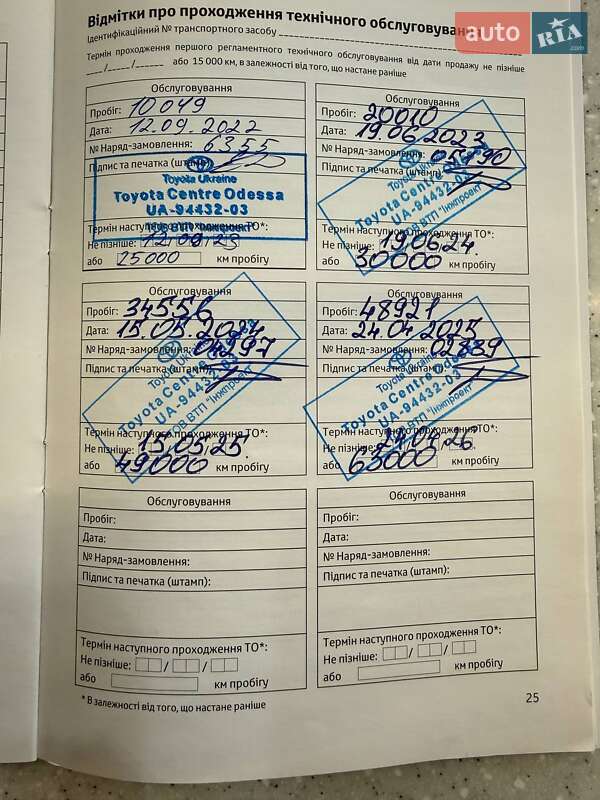 Відмітки про проходження технічного обслуговування
auto RIA.com
Ідентифікаційний № транспортного засобу
Термін проходження першого регламентного технічного обслуговування від дати продажу не пізніше
___/___/______ або 15 000 км, в залежності від того, що настане раніше
Обслуговування
Пробіг: 10 049
Дата: 12.09.2022
№ Наряд-замовлення: 6355
Підпис та печатка (штамп)
Toyota Ukraine
Toyota Centre Odessa
UA-94432-03
Термін наступного проходження ТО*:
Не пізніше: 12.09.23
або 25000 км пробігу
Обслуговування
Пробіг: 20010
Дата: 19.06.2023
№ Наряд-замовлення:
Підпис та печатка (штамп):
Toyota Ukraine
Toyota Centre
UA-94432-03
ВТП "Інжпроект
Термін наступного проходження ТО*:
Не пізніше: 19.06.24.
або 30000 км пробігу
Обслуговування
Пробіг: 34556
Дата: 15.05.2024
№ Наряд-замовлення: 04297
Підпис та печатка (штамп)
Toyota
Toyota Centre
UA-94432-03
ТОВ ВТП "Інжпроект
Термін наступного проходження ТО*:
Не пізніше: 15.05.25.
або 49000 км пробігу
Обслуговування
Пробіг: 48921
Дата: 24.04.2025
№ Наряд-замовлення: 02889
Підпис та печатка (штамп)
Toyota Ukraine
Toyota Centre Odessa
UA-94432-03
ТОВ ВТП "Інжпроект
Термін наступного проходження ТО*:
Не пізніше: 24.04.26
або 63000 км пробігу
Обслуговування
Пробіг:
Дата:
№ Наряд-замовлення:
Підпис та печатка (штамп):
Термін наступного проходження ТО*:
Не пізніше: / /
або км пробігу
Обслуговування
Пробіг:
Дата:
№ Наряд-замовлення:
Підпис та печатка (штамп):
Термін наступного проходження ТО*:
Не пізніше: / /
або км пробігу
* В залежності від того, що настане раніше
25